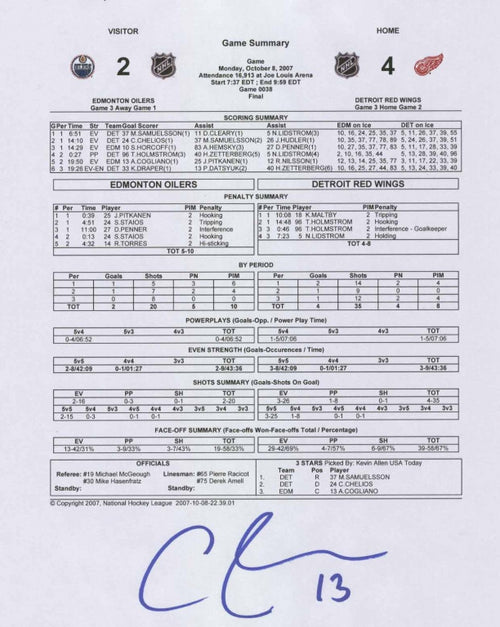 VISITOR
HOME
Game Summary
OILERS
2
NHL
Game
Monday, October 8, 2007
Attendance 16,913 at Joe Louis Arena
Start 7:37 EDT ; End 9:59 EDT
Game 0038
Final
NHL
4
EDMONTON OILERS
Game 3 Away Game 1
DETROIT RED WINGS
Game 3 Home Game 2
SCORING SUMMARY
G Per Time Str Team Goal Scorer Assist Assist EDM on Ice DET on Ice
1 1 6:51 EV DET 37 M.SAMUELSSON(1) 11 D.CLEARY(1) 5 N.LIDSTROM(3) 10, 16, 24, 25, 35, 37 5, 11, 26, 37, 39, 55
2 1 14:10 EV DET 24 C.CHELIOS(1) 37 M.SAMUELSSON(2) 26 J.HUDLER(1) 10, 35, 37, 77, 78, 89 5, 24, 26, 37, 39, 51
3 1 14:29 EV EDM 10 S.HORCOFF(1) 83 A.HEMSKY(3) 27 D.PENNER(1) 10, 27, 35, 37, 77, 83 5, 11, 17, 28, 33, 39
4 2 0:27 PP DET 96 T.HOLMSTROM(3) 40 H.ZETTERBERG(5) 5 N.LIDSTROM(4) 2, 10, 16, 35, 44 5, 13, 28, 39, 40, 96
5 2 19:50 EV EDM 13 A.COGLIANO(1) 25 J.PITKANEN(1) 12 R.NILSSON(1) 12, 13, 14, 25, 35, 77 3, 11, 17, 22, 33, 39
6 3 19:28 EV-EN DET 33 K.DRAPER(1) 13 P.DATSYUK(2) 40 H.ZETTERBERG(6) 10, 16, 25, 27, 44, 83 5, 13, 24, 33, 39, 40
EDMONTON OILERS
DETROIT RED WINGS
PENALTY SUMMARY
# Per Time Player PIM Penalty
1 1 0:39 25 J.PITKANEN 2 Hooking
2 1 4:51 24 S.STAIOS 2 Tripping
3 1 11:00 27 D.PENNER 2 Interference
4 2 0:13 24 S.STAIOS 2 Hooking
5 2 4:32 14 R.TORRES 2 Hi-sticking
TOT 5-10
# Per Time Player PIM Penalty
1 1 10:08 18 K.MALTBY 2 Tripping
2 1 14:48 96 T.HOLMSTROM 2 Hooking
3 3 0:46 96 T.HOLMSTROM 2 Interference - Goalkeeper
4 3 7:23 5 N.LIDSTROM 2 Holding
TOT 4-8
BY PERIOD
Per Goals Shots PN PIM
1 1 5 3 6
2 1 7 2 4
3 0 8 0 0
TOT 2 20 5 10
Per Goals Shots PN PIM
1 2 14 2 4
2 1 9 0 0
3 1 12 2 4
TOT 4 35 4 8
POWERPLAYS (Goals-Opp. / Power Play Time)
5v4 5v3 4v3 TOT
0-4/06:52 0-4/06:52
5v4 5v3 4v3 TOT
1-5/07:06 1-5/07:06
EVEN STRENGTH (Goals-Occurences / Time)
5v5 4v4 3v3 TOT
2-8/42:09 0-1/01:27 2-9/43:36
5v5 4v4 3v3 TOT
3-8/42:09 0-1/01:27 3-9/43:36
SHOTS SUMMARY (Goals-Shots On Goal)
EV PP SH TOT
2-16 0-3 0-1 2-20
5v5 5v4 5v3 4v5 4v4 4v3 3v5 3v4 3v3
2-15 0-3 0-1 0-1
EV PP SH TOT
3-26 1-8 0-1 4-35
5v5 5v4 5v3 4v5 4v4 4v3 3v5 3v4 3v3
3-25 1-8 0-1 0-1
FACE-OFF SUMMARY (Face-offs Won-Face-offs Total / Percentage)
EV PP SH TOT
13-42/31% 3-9/33% 3-7/43% 19-58/33%
EV PP SH TOT
29-42/69% 4-7/57% 6-9/67% 39-58/67%
OFFICIALS
Referee: #19 Michael McGeough Linesman: #65 Pierre Racicot
#30 Mike Hasenfratz #75 Derek Amell
Standby: Standby:
3 STARS Picked By: Kevin Allen USA Today
Team Pos Player
1. DET R 37 M.SAMUELSSON
2. DET D 24 C.CHELIOS
3. EDM C 13 A.COGLIANO
© Copyright 2007, National Hockey League 2007-10-08-22.39.01
13